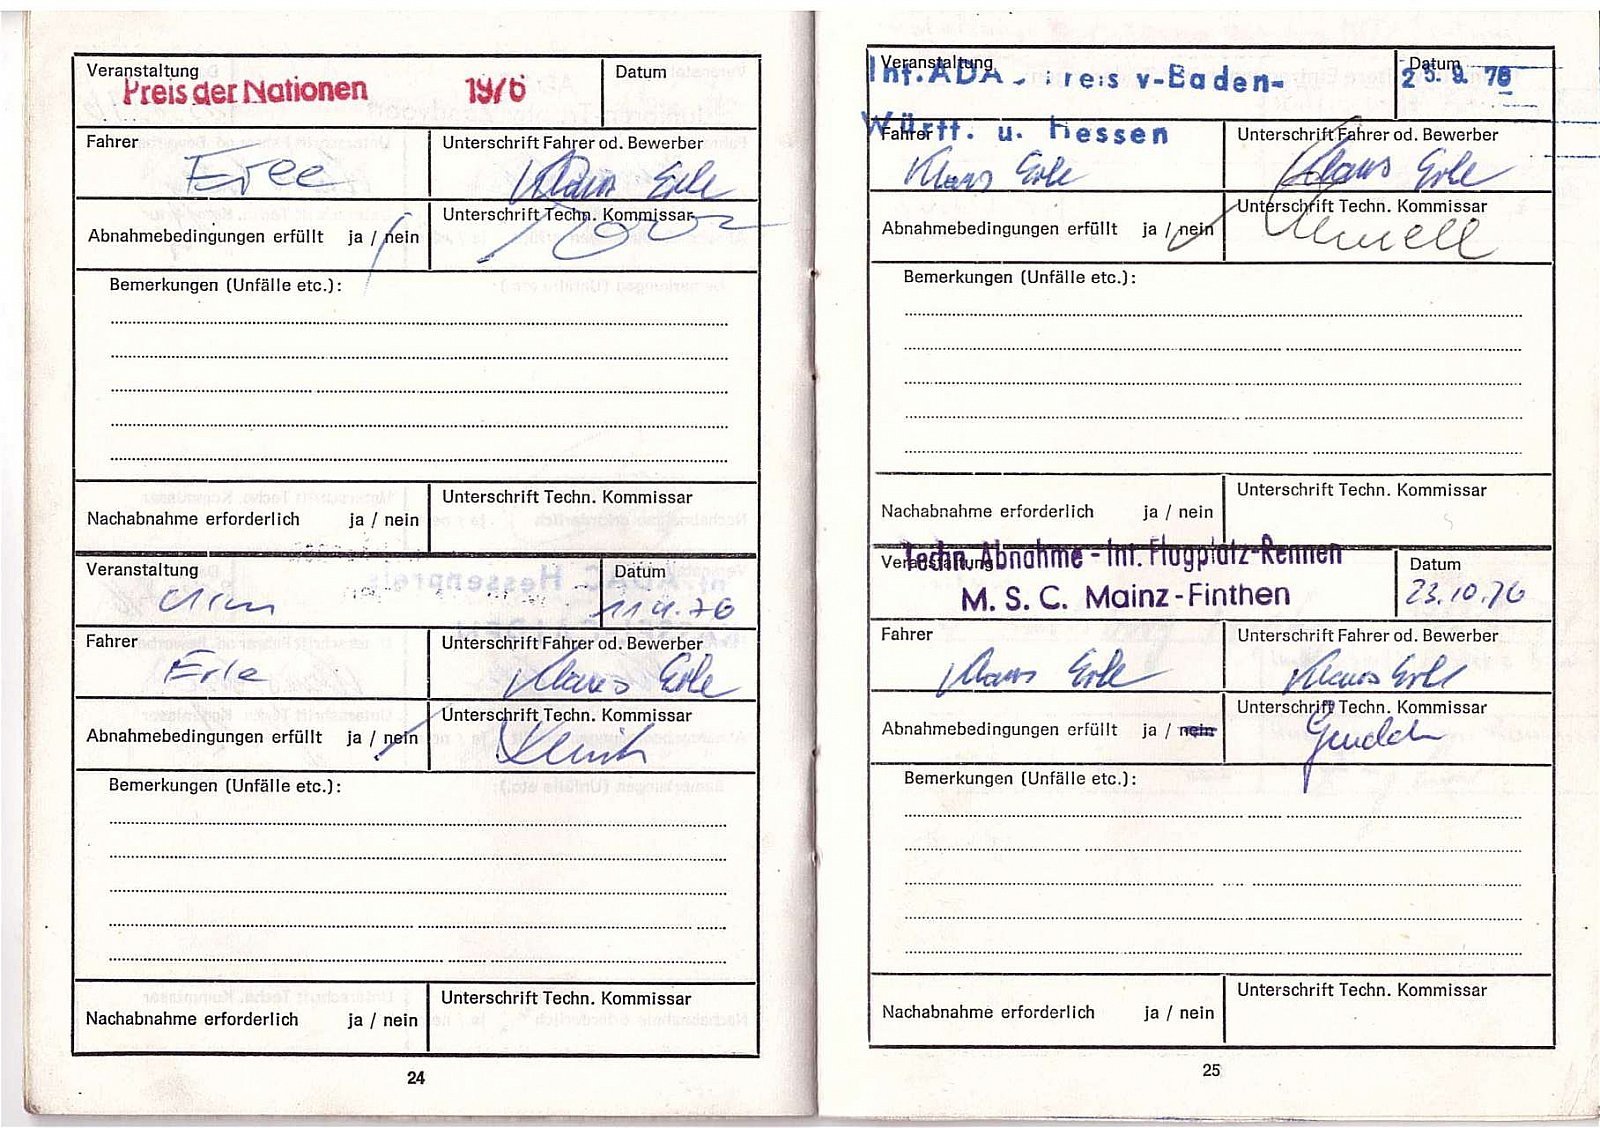 Veranstaltung
Preis der Nationen 1976
Datum
Fahrer
Erle
Unterschrift Fahrer od. Bewerber
Klaus Erle
Abnahmebedingungen erfüllt ja / nein
Unterschrift Techn. Kommissar
Bemerkungen (Unfälle etc.):
Nachabnahme erforderlich ja / nein
Unterschrift Techn. Kommissar
Veranstaltung
Ulm
Datum
Fahrer
Erle
Unterschrift Fahrer od. Bewerber
Klaus Erle
Abnahmebedingungen erfüllt ja / nein
Unterschrift Techn. Kommissar
Bemerkungen (Unfälle etc.):
Nachabnahme erforderlich ja / nein
Unterschrift Techn. Kommissar
24
Veranstaltung
Int. ADA - Preis v-Baden-
Württ. u. Hessen
Datum
25.9.76
Fahrer
Klaus Erle
Unterschrift Fahrer od. Bewerber
Klaus Erle
Abnahmebedingungen erfüllt ja / nein
Unterschrift Techn. Kommissar
Bemerkungen (Unfälle etc.):
Nachabnahme erforderlich ja / nein
Unterschrift Techn. Kommissar
Veranstaltung
Techn. Abnahme - Int. Flugplatz-Rennen
M. S. C. Mainz-Finthen
Datum
23.10.76
Fahrer
Klaus Erle
Unterschrift Fahrer od. Bewerber
Klaus Erle
Abnahmebedingungen erfüllt ja / nein
Unterschrift Techn. Kommissar
Bemerkungen (Unfälle etc.):
Nachabnahme erforderlich ja / nein
Unterschrift Techn. Kommissar
25